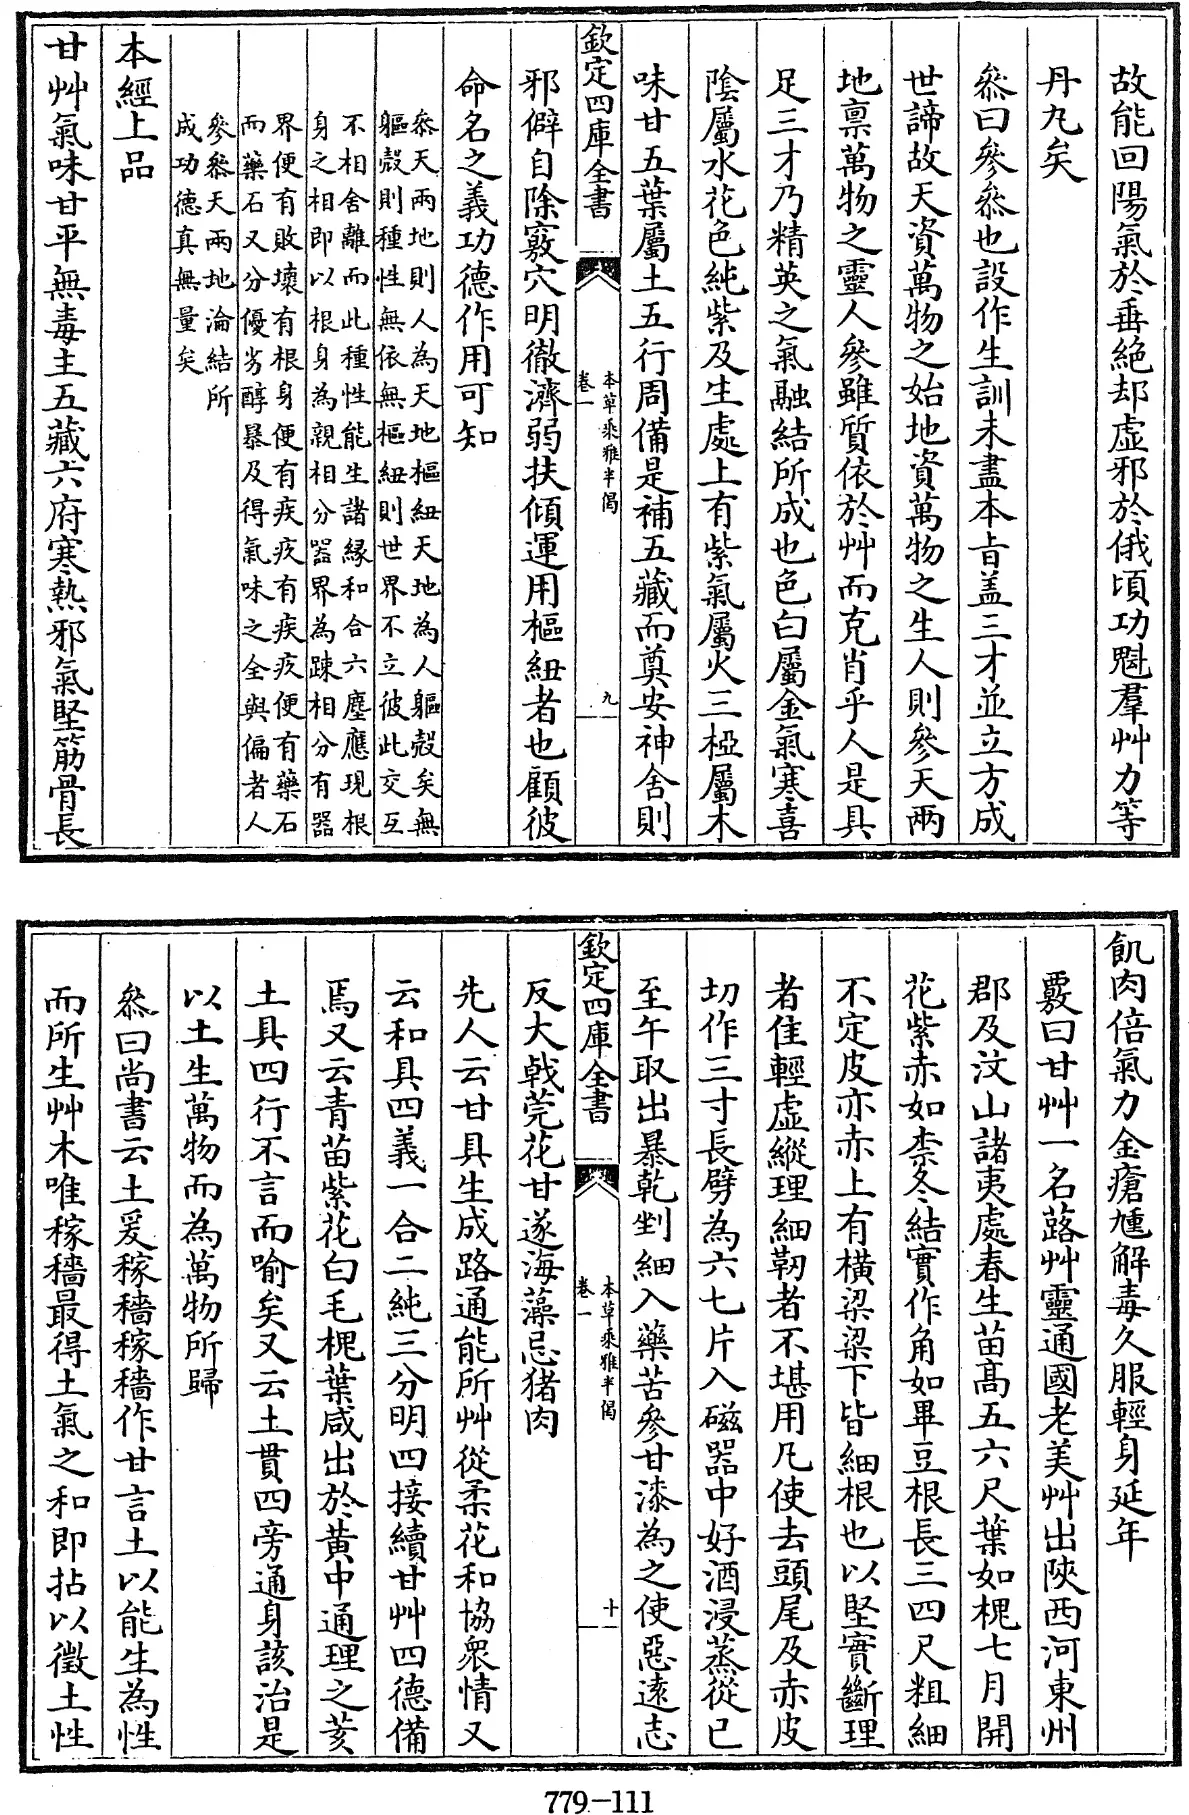 故能回陽氣於垂絶却虚邪於俄頃功魁羣艸力等
丹丸矣
叅曰參叅也設作生訓未盡本㫖盖三才並立方成
世諦故天資萬物之始地資萬物之生人則參天兩
地禀萬物之靈人參雖質依於艸而克肖乎人是具
足三才乃精英之氣融結所成也色白屬金氣寒喜
陰屬水花色純紫及生處上有紫氣屬火三椏屬木
味甘五葉屬土五行周備是補五藏而奠安神舍則
欽定四庫全書
本草乘雅半偈
卷一
九
邪僻自除竅穴明徹濟弱扶傾運用樞紐者也顧彼
命名之義功德作用可知
叅天兩地則人為天地樞紐天地為人軀殻矣無
軀殻則種性無依無樞紐則世界不立彼此交互
不相舍離而此種性能生諸緣和合六塵應現根
身之相即以根身為親相分器界為踈相分有器
界便有敗壞有根身便有疾疢有疾疢便有藥石
而藥石又分優劣醇暴及得氣味之全與偏者人
參叅天兩地淪結所
成功德真無量矣
本經上品
甘艸氣味甘平無毒主五藏六府寒熱邪氣堅筋骨長
飢肉倍氣力金瘡尰解毒久服輕身延年
覈曰甘艸一名蕗艸靈通國老美艸出陝西河東州
郡及汶山諸夷處春生苗高五六尺葉如槐七月開
花紫赤如柰冬結實作角如畢豆根長三四尺粗細
不定皮亦赤上有橫梁梁下皆細根也以堅實斷理
者佳輕虛縱理細靭者不堪用凡使去頭尾及赤皮
切作三寸長劈為六七片入磁器中好酒浸蒸從巳
至午取出暴乾剉細入藥苦參甘漆為之使惡遠志
欽定四庫全書
本草乘雅半偈
卷一
十
反大戟莞花甘遂海藻忌猪肉
先人云甘具生成路通能所艸從柔花和協衆情又
云和具四義一合二純三分明四接續甘艸四德備
焉又云青苗紫花白毛槐葉咸出於黄中通理之荄
土具四行不言而喻矣又云土貫四旁通身該治是
以土生萬物而為萬物所歸
叅曰尚書云土爰稼穡稼穡作甘言土以能生為性
而所生艸木唯稼穡最得土氣之和即拈以徵土性
779-111